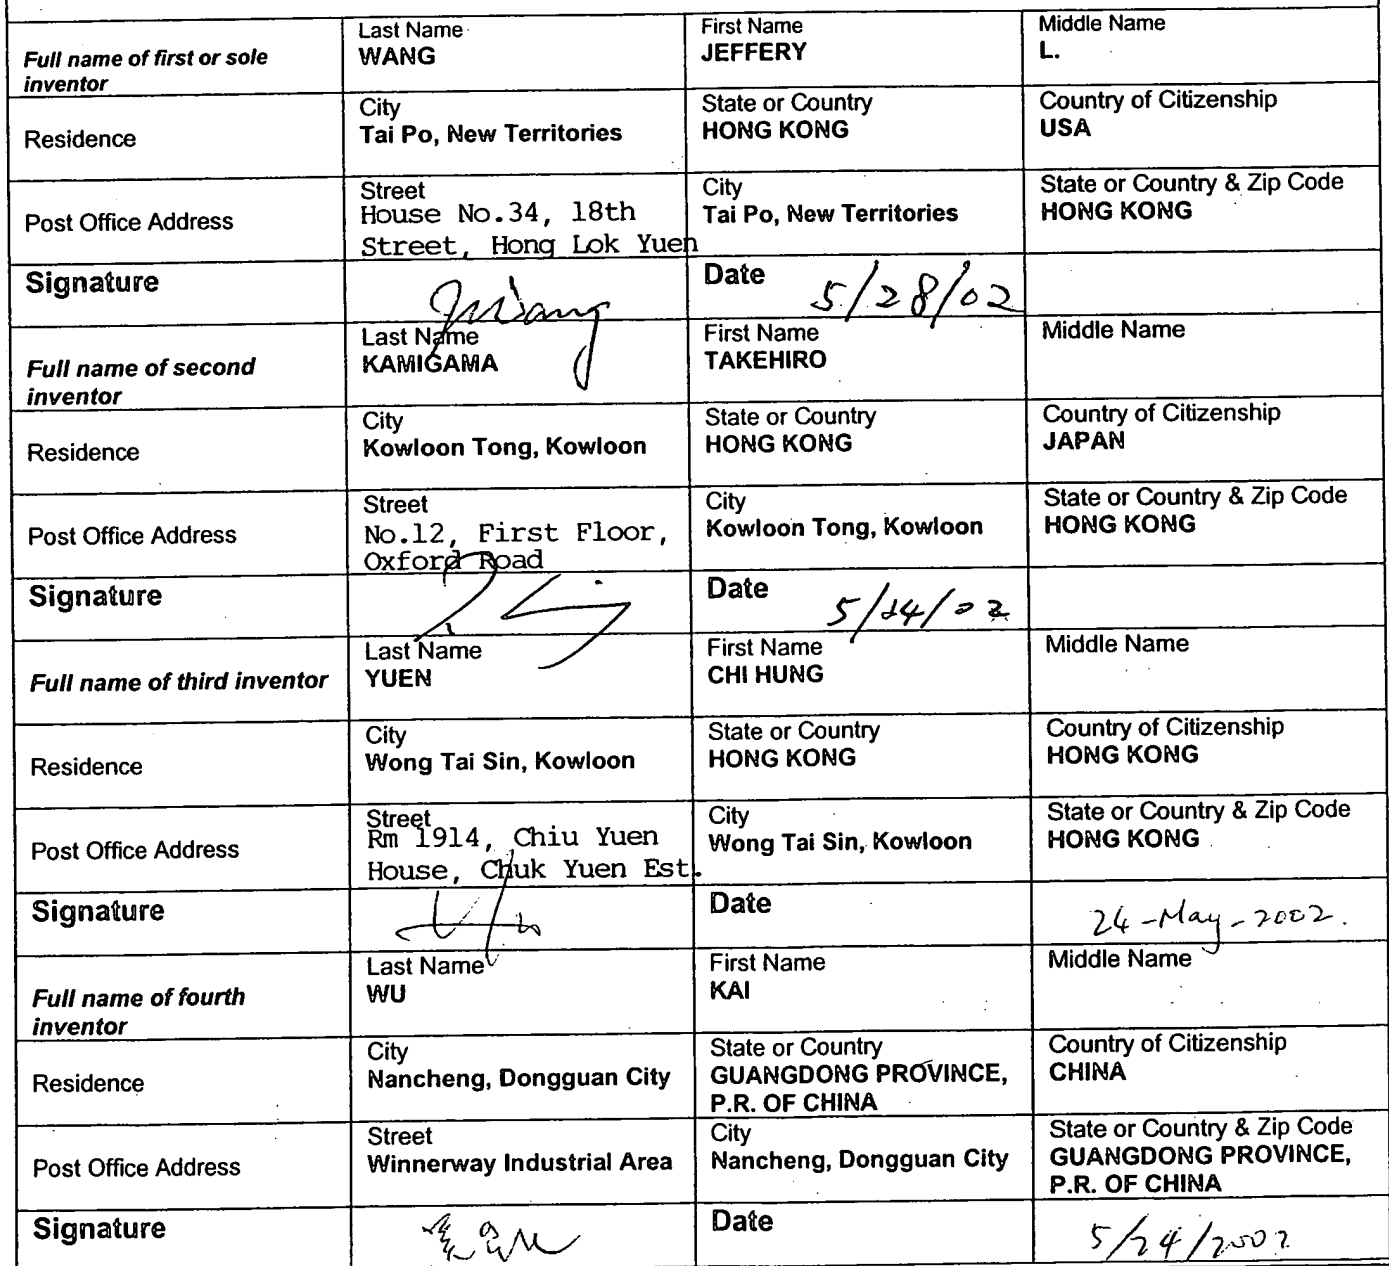 Full name of first or sole
inventor
Last Name
WANG
First Name
JEFFERY
Middle Name
L.
Residence
City
Tai Po, New Territories
State or Country
HONG KONG
Country of Citizenship
USA
Post Office Address
Street
House No.34, 18th
Street, Hong Lok Yuen
City
Tai Po, New Territories
State or Country & Zip Code
HONG KONG
Signature
Date
5/28/02
Full name of second
inventor
Last Name
KAMIGAMA
First Name
TAKEHIRO
Middle Name
Residence
City
Kowloon Tong, Kowloon
State or Country
HONG KONG
Country of Citizenship
JAPAN
Post Office Address
Street
No.12, First Floor,
Oxford Road
City
Kowloon Tong, Kowloon
State or Country & Zip Code
HONG KONG
Signature
Date
Full name of third inventor
Last Name
YUEN
First Name
CHI HUNG
Middle Name
Residence
City
Wong Tai Sin, Kowloon
State or Country
HONG KONG
Country of Citizenship
HONG KONG
Post Office Address
Street
Rm 1914, Chiu Yuen
House, Chuk Yuen Est.
City
Wong Tai Sin, Kowloon
State or Country & Zip Code
HONG KONG
Signature
Date
24-May-2002.
Full name of fourth
inventor
Last Name
WU
First Name
KAI
Middle Name
Residence
City
Nancheng, Dongguan City
State or Country
GUANGDONG PROVINCE,
P.R. OF CHINA
Country of Citizenship
CHINA
Post Office Address
Street
Winnerway Industrial Area
City
Nancheng, Dongguan City
State or Country & Zip Code
GUANGDONG PROVINCE,
P.R. OF CHINA
Signature
Date
5/24/2002